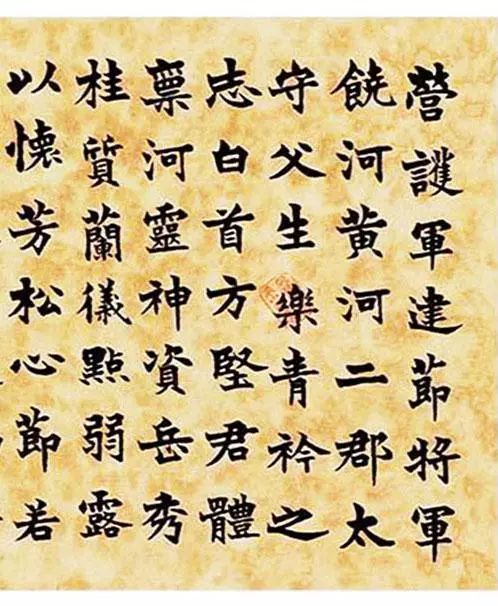 營護軍建節將軍
饒河黄河二郡太
守父生樂青衿之
志白首方堅君體
稟河靈神資岳秀
桂質蘭儀點弱露
以懷芳松心節若